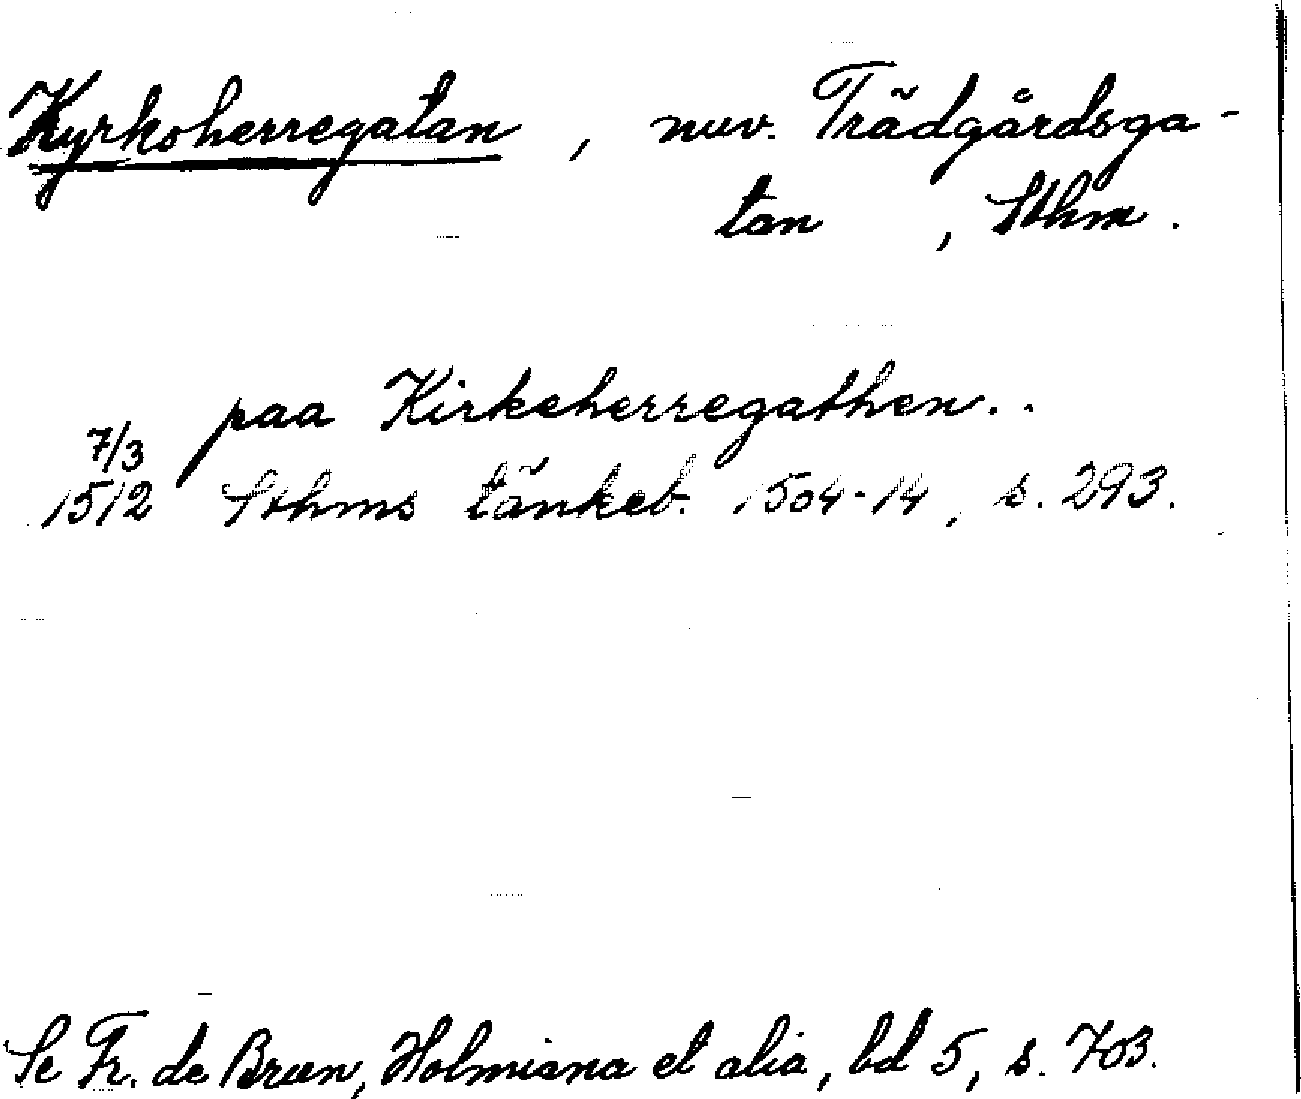 Kyrkoherregatan, nuv. Trädgårdsga-
tan, Sthm.
paa Kirkeherregathen..
7/3
1512 Sthms tänkeb. 1504-14, s. 293.
Se Fr. de Brun, Holmiana et alia, bd 5, s. 703.